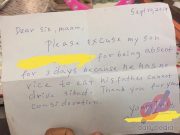 Sept 19, 2019
Dear Sir, maam,
Please excuse my son
for being absent
for 3 days because he has no
rice to eat his father cannot
drive tribut. Thank you for your
consideration.